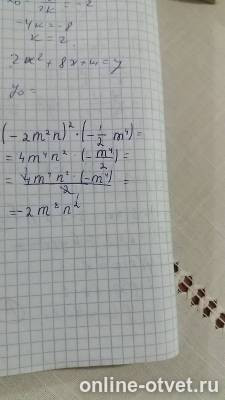 -4x=-8
x=2
2x²+8x+m=y
y₀=
(-2m²n)²·(-1/2 m⁴)=
=4m⁴n²·(-m⁴/2)=
=4m⁴n²·(-m⁴)/2=
=-2m⁸n²
online-otvet.ru